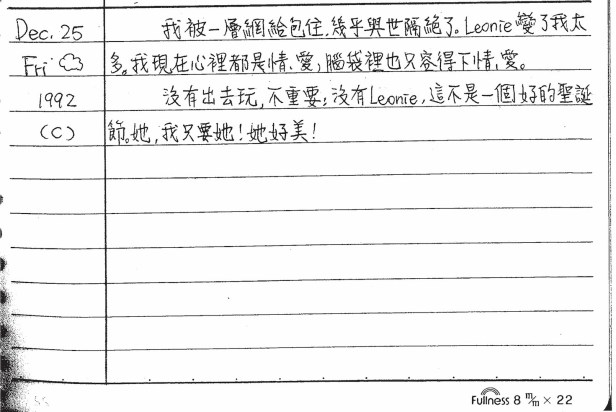 Dec. 25 我被一層網給包住,幾乎與世隔絕了。Leonie變了我太
Fri 多。我現在心裡都是情、愛,腦袋裡也只容得下情、愛。
1992 沒有出去玩,不重要;沒有Leonie,這不是一個好的聖誕
(C) 節。她,我只要她!她好美!
Fullness 8 m/m × 22